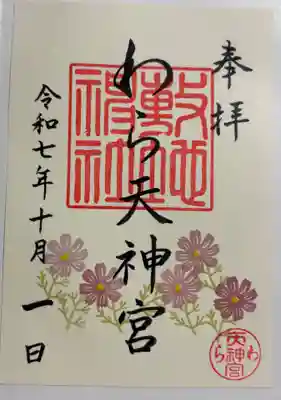 奉拝
わら天神宮
敷地神社
令和七年十月一日
わら天神宮